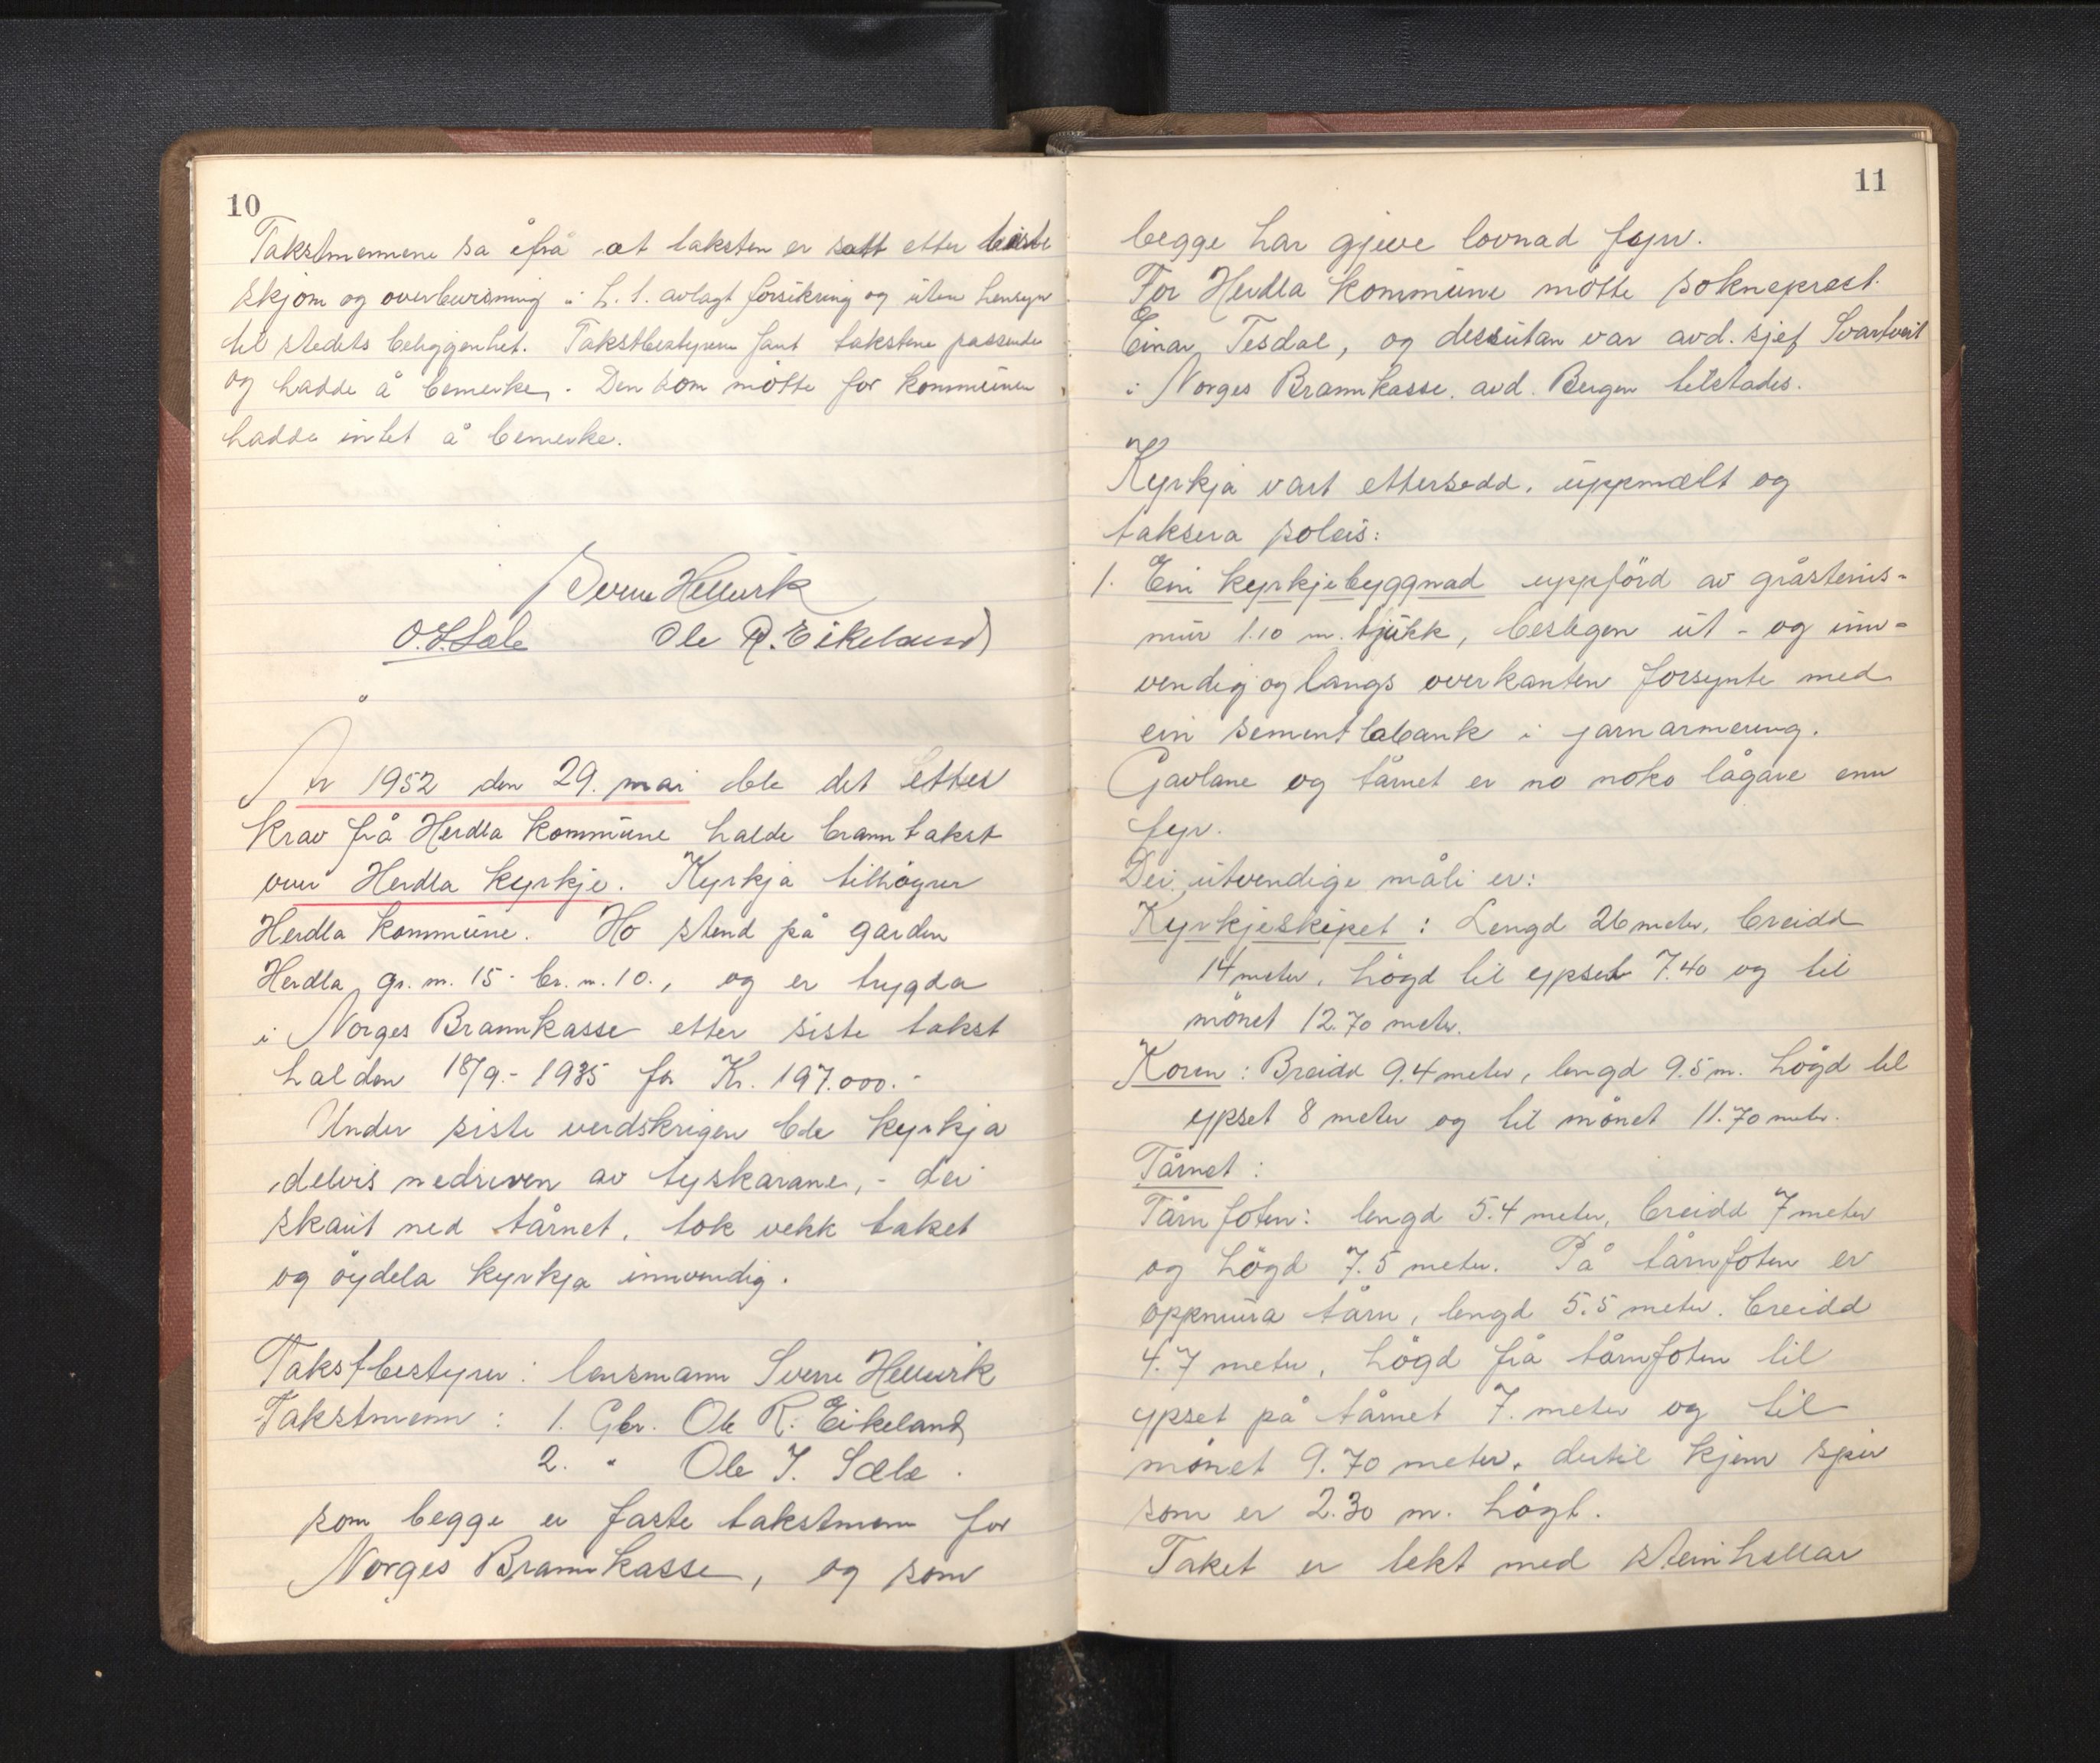 10
Takstmennene sa ifrå at taksten er satt etter beiste
skjøn og overbevisning i h. t. avlagt forsikring og uten hensyn
til stedets beliggenhet. Takstbestyreren fant takstene passende
og hadde å bemerke. Den som møtte for kommunen
hadde intet å bemerke.
Sverre Hellevik
O. J. Sæle Ole R. Eikeland
År 1952 den 29. mai ble det etter
krav frå Herdla kommune halde branntakst
over Herdla kyrkje. Kyrkja tilhøyrer
Herdla kommune. Ho stend på garden
Herdla gr. nr. 15 - br. nr. 10., og er trygda
i Norges Brannkasse etter siste takst
halden 18/9.- 1935 for Kr. 197.000.-
Under siste verdskrigen ble kyrkja
delvis nedreven av tyskarane, - dei
skaut ned tårnet, tok vekk taket
og øydela kyrkja innvendig.
Takstbestyrer: lensmann Sverre Hellevik
Takstmenn: 1. Gbr. Ole R. Eikeland
2. " Ole J. Sæle.
som begge er faste takstmenn for
Norges Brannkasse, og som
11
begge har gjeve lovnad fyrr.
For Herdla kommune møtte sokneprest
Einar Tesdal, og dessutan var avd. sjef Svartveit
i Norges Brannkasse, avd. Bergen tilstades.
Kyrkja vart ettersedd, uppmælt og
taksera soleis:
1. Ein kyrkjebyggnad uppförd av gråsteins-
mur 1.10 m. tjukk, beslegen ut- og inn-
vendig og langs overkanten forsynte med
ein sement labank i jarnarmering.
Gavlane og tårnet er no noko lågare enn
fyrr.
Dei utvendige måli er:
Kyrkjeskipet: Lengd 26 meter, breidd
14 meter, högd til gpset 7.40 og til
mönet 12.70 meter.
Koren: Breidd 9.4 meter, lengd 9.5 m. högd til
gpset 8 meter og til mönet 11.70 meter.
Tårnet:
Tårnfoten: lengd 5.4 meter, breidd 7 meter
og högd 7.5 meter. På tårnfoten er
oppmura tårn, lengd 5.5 meter, breidd
4.7 meter, högd frå tårnfoten til
gpset på tårnet 7. meter og til
mönet 9.70 meter, dertil kjem spir
som er 2.30 m. högt.
Taket er tekt med steinhellar